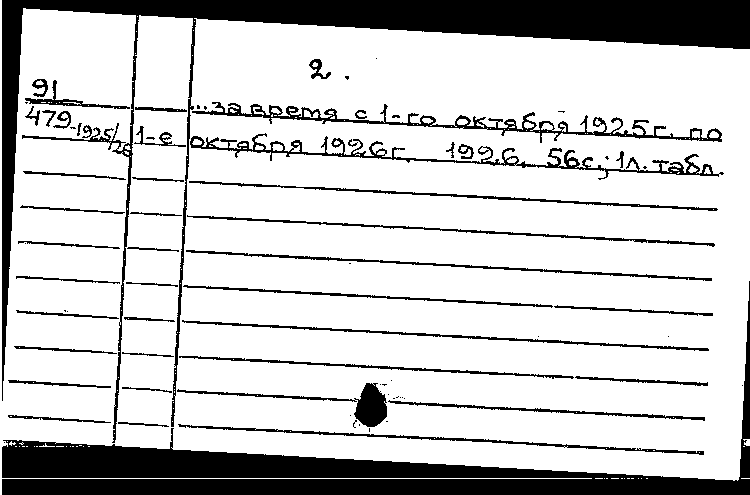 2.
91
...за время с 1-го октября 1925 г. по
479-1925/26 1-е октября 1926 г. 1926. 56 с.; 1 л. табл.